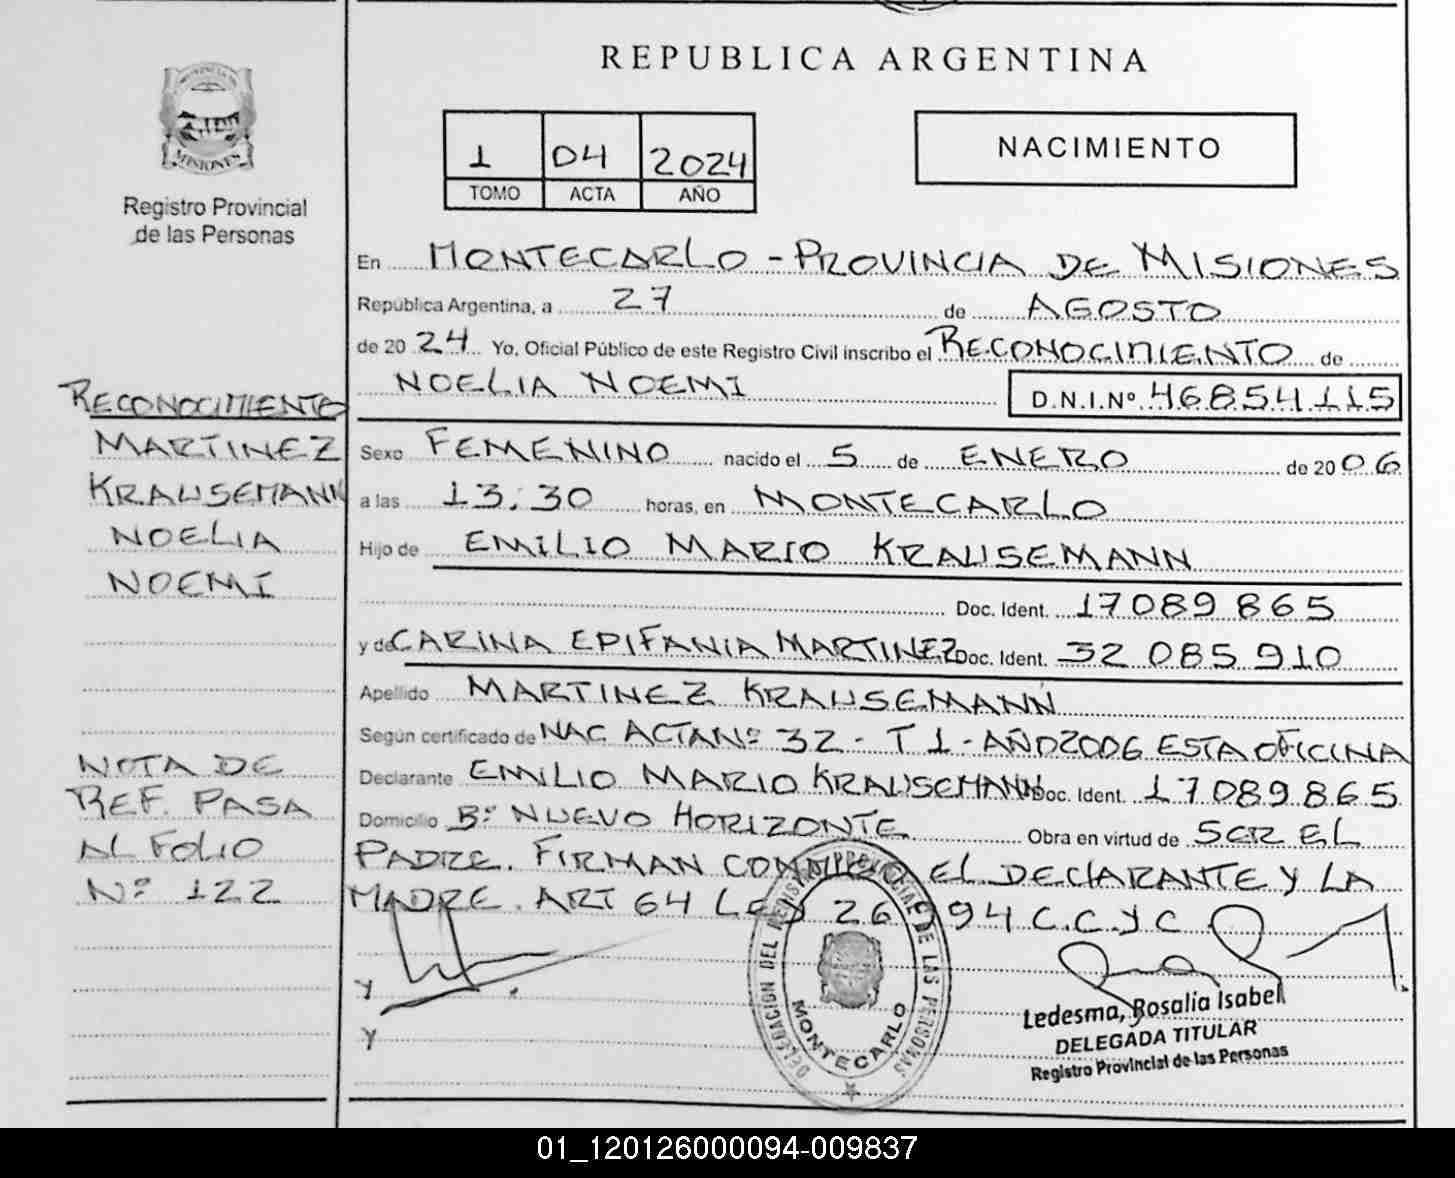 REPUBLICA ARGENTINA
MISIONES
Registro Provincial
de las Personas
1 04 2024
TOMO ACTA AÑO
NACIMIENTO
En MONTECARLO - PROVINCIA DE MISIONES
República Argentina, a 27 de AGOSTO
de 20 24 Yo, Oficial Público de este Registro Civil inscribo el RECONOCIMIENTO de
NOELIA NOEMI D.N.I.Nº 46854115
Sexo FEMENINO nacido el 5 de ENERO de 20 06
a las 13:30 horas, en MONTECARLO
Hijo de EMILIO MARIO KRAUSEMANN
Doc. Ident. 17089865
y de CARINA EPIFANIA MARTINEZ Doc. Ident. 32 085 910
Apellido MARTINEZ KRAUSEMANN
Según certificado de NAC ACTA Nº 32 - T 1 - AÑO 2006 ESTA OFICINA
Declarante EMILIO MARIO KRAUSEMANN Doc. Ident. 17089865
Domicilio Bº NUEVO HORIZONTE Obra en virtud de SER EL
PADRE. FIRMAN CONMIGO EL DECLARANTE Y LA
MADRE. ART 64 LEY 26994 C.C.y C
y
y
RECONOCIMIENTO
MARTINEZ
KRAUSEMANN
NOELIA
NOEMI
NOTA DE
REF. PASA
AL FOLIO
Nº 122
DELEGACION DEL REGISTRO PROVINCIAL DE LAS PERSONAS
MONTECARLO
Ledesma, Rosalia Isabel
DELEGADA TITULAR
Registro Provincial de las Personas
01_120126000094-009837